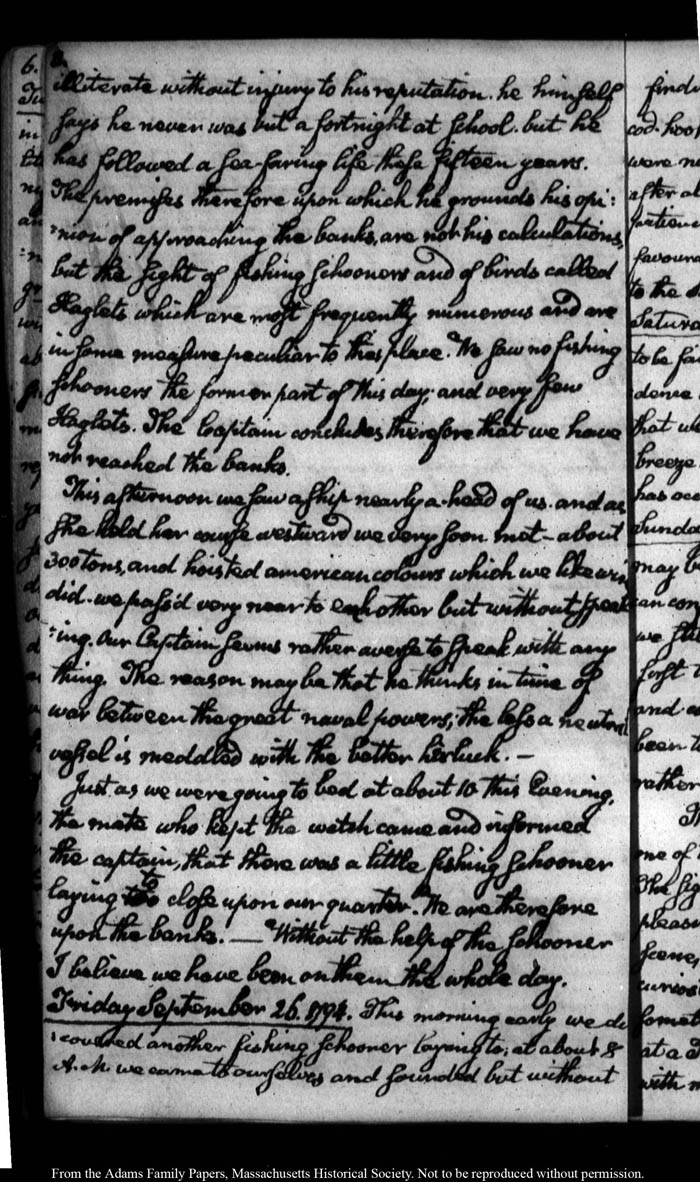 6.
illiterate without injury to his reputation. he himself
says he never was but a fortnight at school. but he
has followed a sea-faring life these fifteen years.
The premises therefore upon which he grounds his opi:
:nion of approaching the banks, are not his calculations,
but the sight of fishing schooners and of birds called
Haglets which are most frequently numerous and are
in some measure peculiar to this place. We saw no fishing
schooners the former part of this day: and very few
Haglets. The Captain concludes therefore that we have
not reached the banks.
This afternoon we saw a ship nearly a-head of us. and as
she held her course westward we very soon met - about
300 tons, and hoisted american colours which we likewise
did - we pass'd very near to each other but without speak
:ing. Our Captain seems rather averse to speak with any
thing. The reason may be that he thinks in time of
war between the great naval powers; the less a neutral
vessel is meddled with the better her luck. —
Just as we were going to bed at about 10 this Evening,
the mate who kept the watch came and informed
the captain, that there was a little fishing schooner
laying to close upon our quarter. We are therefore
upon the banks. — Without the help of the schooner
I believe we have been on them the whole day.
Friday September 26. 1794. This morning early we dis
:covered another fishing schooner laying to; at about 8
A.M. we came to ourselves and sounded but without
find
cod-hoo
were n
after a
favoura
to the
Saturd
to be fa
dence
that we
breeze
has occ
Sunda
may b
can con
we st
first
and
been t
rather
Th
one of
The sig
pleas
scene,
curios
format
at a d
with m
From the Adams Family Papers, Massachusetts Historical Society. Not to be reproduced without permission.